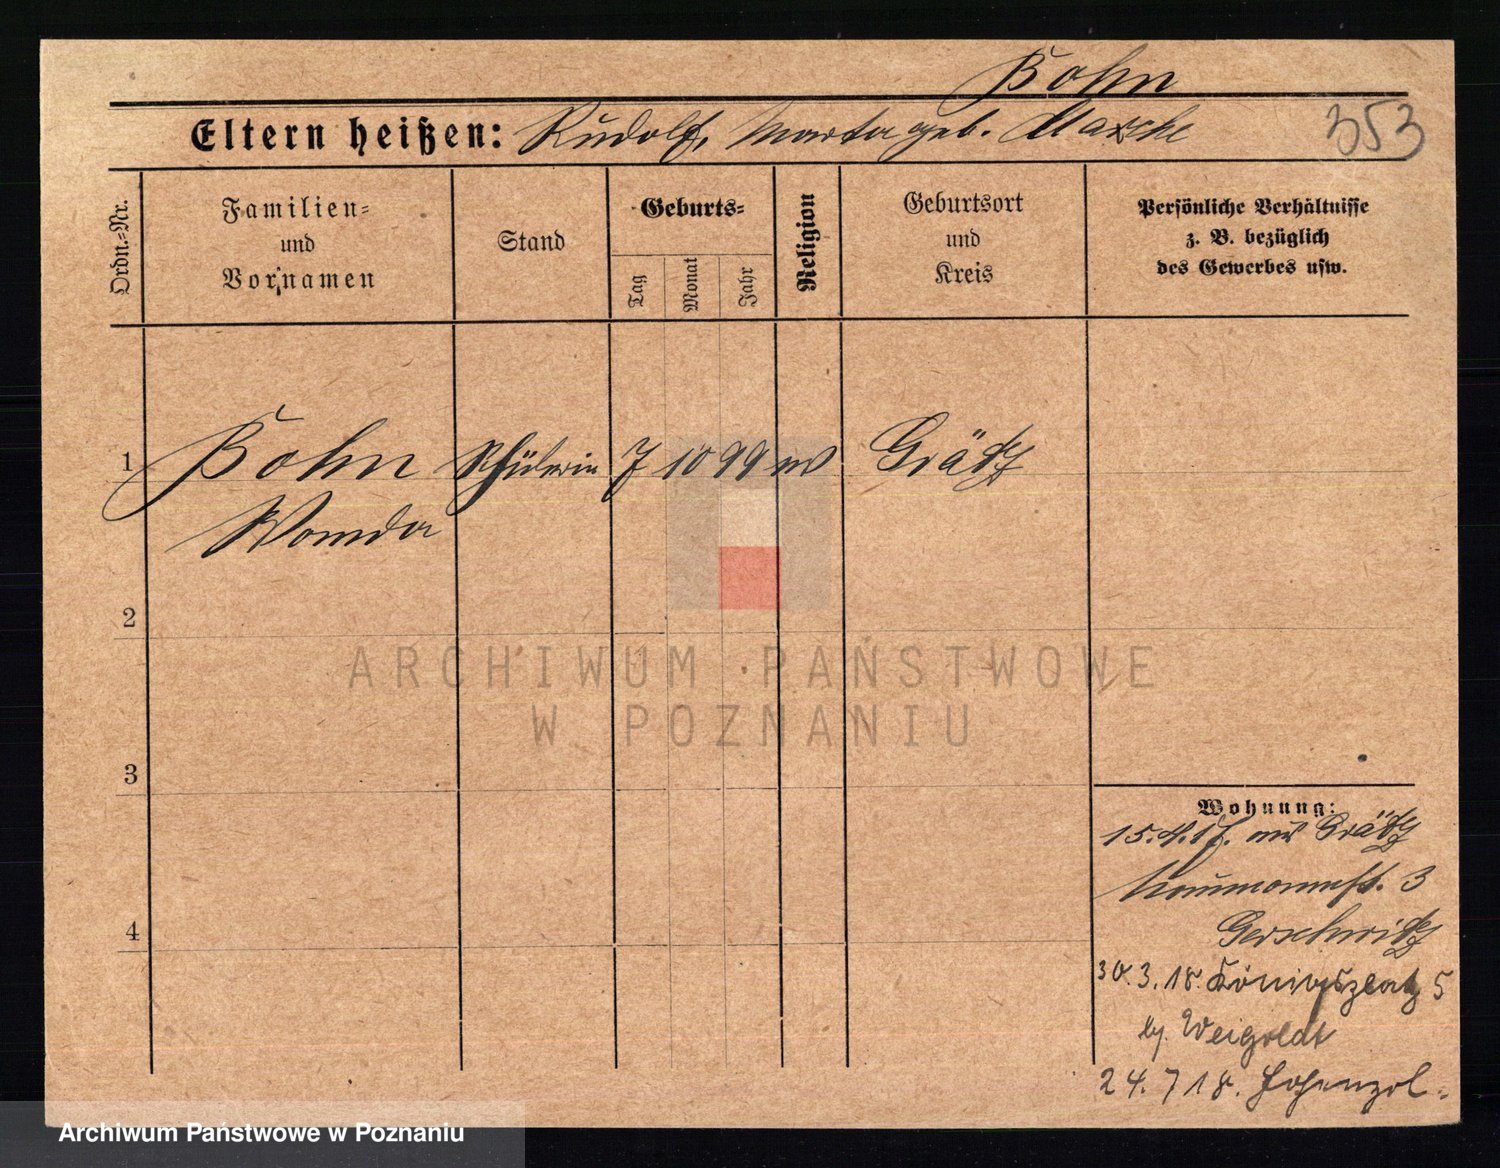 Bohn
Eltern heißen: Rudolf, Marta geb. Maxche
353
Ordn.-Nr.
Familien-
und
Vornamen
Stand
Geburts-
Tag
Monat
Jahr
Religion
Geburtsort
und
Kreis
Persönliche Verhältnisse
z. B. bezüglich
des Gewerbes usw.
1 Bohn Schülerin 7 10 99 ev Grätz
Wanda
2
3
4
Wohnung:
15.4.17. aus Grätz
Naumannst. 3
30.3.18. Königsplatz 5
by. Weigoldt
24.7 18. Hohenzol-
ARCHIWUM PAŃSTWOWE
W POZNANIU
Archiwum Państwowe w Poznaniu